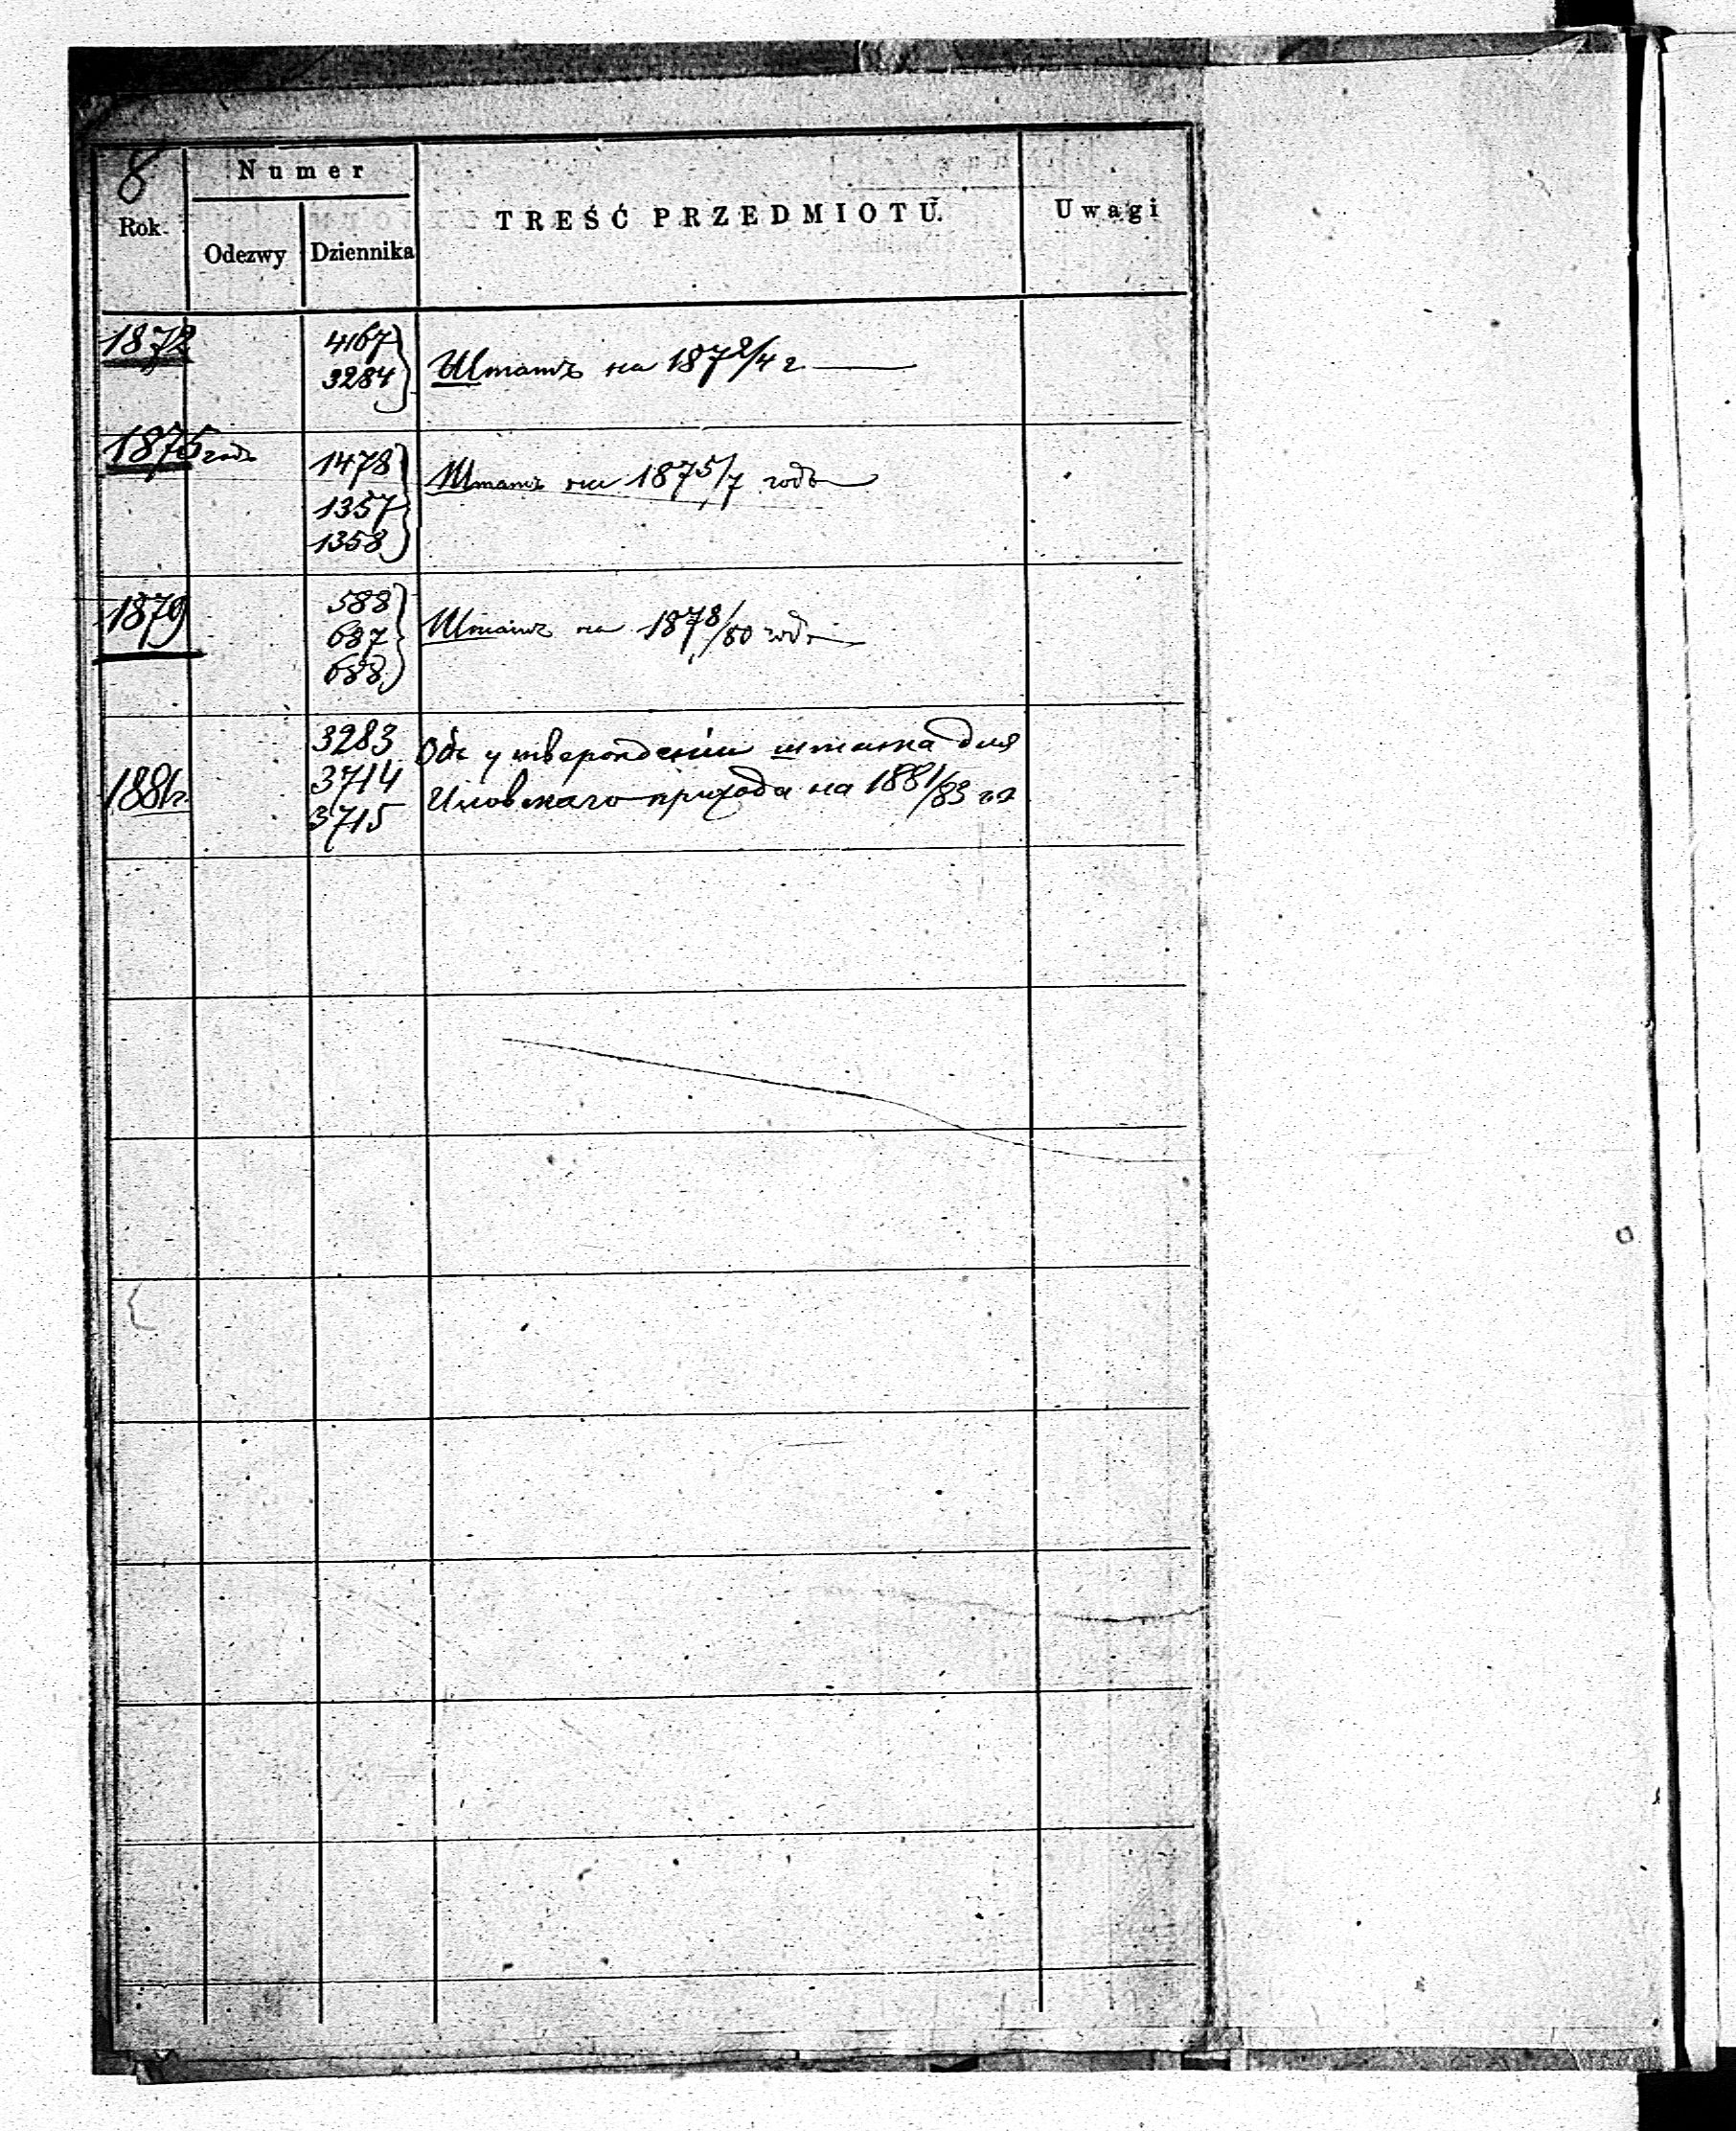 8
Numer
Rok.
TREŚĆ PRZEDMIOTU.
Uwagi
Odezwy
Dziennika
1872
4167
3284
Штатъ на 1872/4 г.
1875 годъ
1478
1357
1358
Штатъ на 1875/7 годъ
1879
588
687
688
Штатъ на 1878/80 годъ
1881 г.
3283
3714
3715
Объ утверждении штата для
Иловскаго прихода на 1881/83 гг